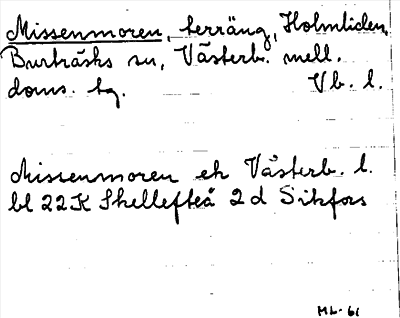 Missenmoren, terräng, Holmliden,
Burträsks sn, Västerb. mell.
doms. tg. Vb. l.
Missenmoren ek Västerb. l.
bl 22K Skellefteå 2d Sikfors
Mb-61